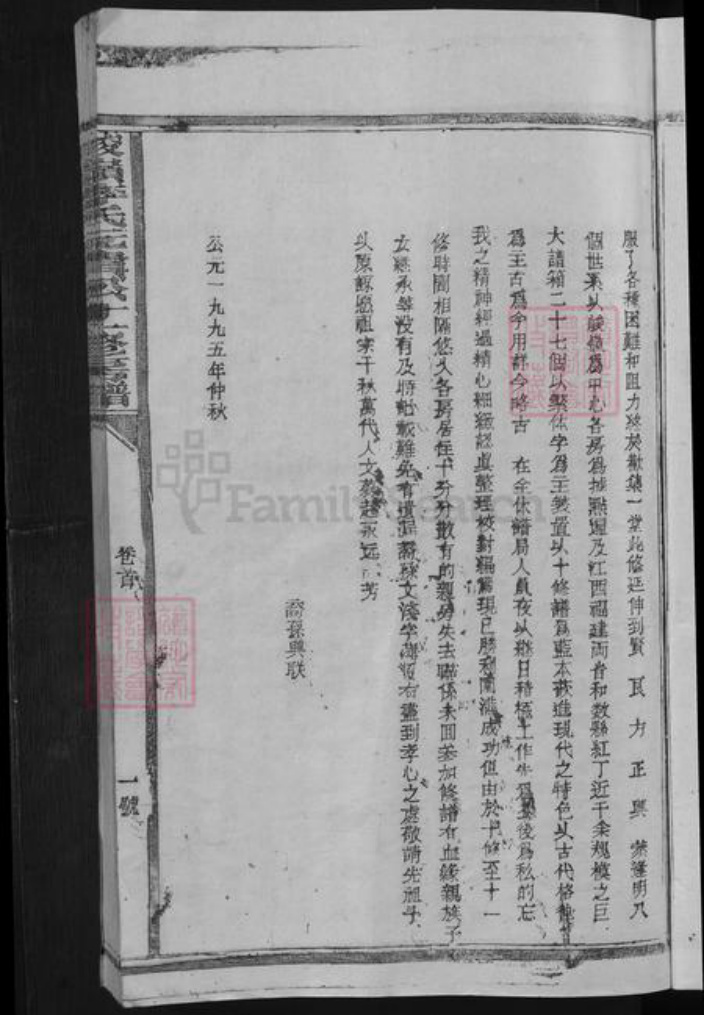 服了各種困難和阻力終於歡集一堂此修延伸到賢良方正興榮逢明八
個世系以峻嶺為中心各房為據點遍及江西福建両省和数縣紅丁近千余规模之巨
大譜箱二十七個以繁体字為主裝置以十修譜為藍本改進現代之特色以古代格
為主古為今用詳今略古 在全体譜局人員夜以継日積極工作先為公後為私的忘
我之精神經過精心細緻認真整理校對編寫現已勝利圓滿成功但由於十修至十一
修時間相隔悠久各房居住十分分散有的親房失去聯係未回參加修譜有血緣親族子
女継承等没有及時記載難免有遺漏 文淺字薄没有盡到孝心之處敬請先祖子
以原諒愿祖宗千秋萬代人文蔚起永远 芳
裔孫興联
公元一九九五年仲秋
峻嶺李氏 十一修宗譜
卷首
一號
FamilySearch